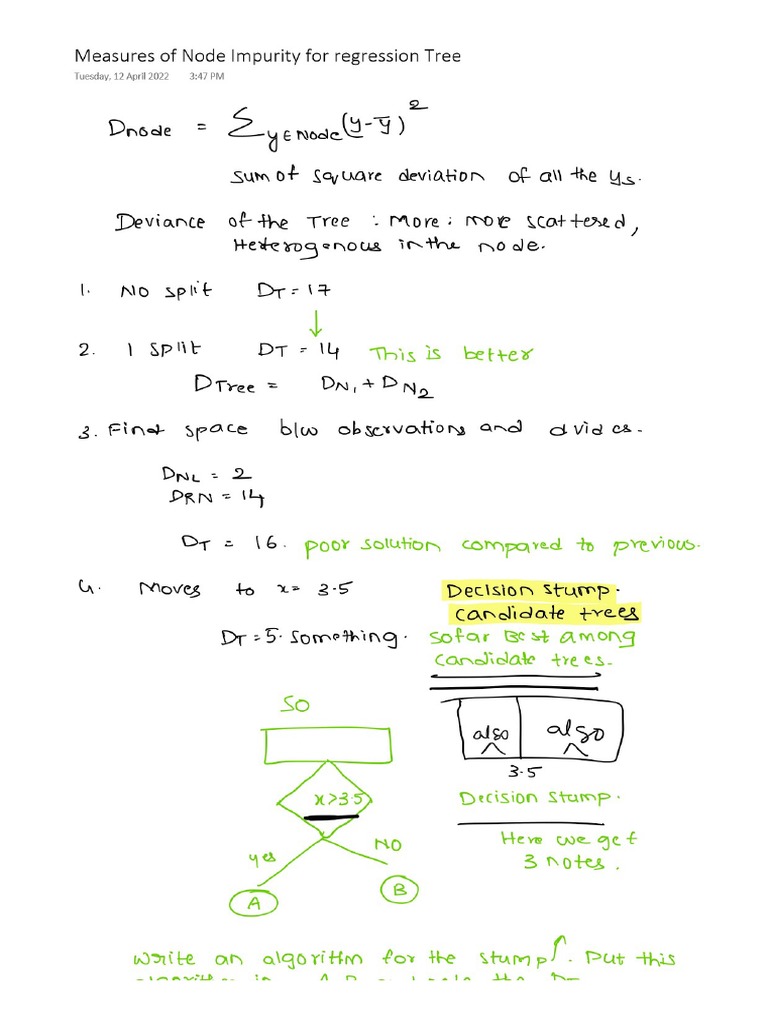 Measures of Node Impurity for regression Tree
Tuesday, 12 April 2022 3:47 PM
Dnode = Σ y∈Node (y-ȳ)²
sum of square deviation of all the ys.
Deviance of the Tree : More : more scattered,
Heterogenous in the node.
1. No split DT = 17
↓
2. 1 split DT = 14 This is better
DTree = DN1 + DN2
3. Find space b/w observations and dvides.
DNL = 2
DRN = 14
DT = 16. poor solution compared to previous.
4. Moves to x = 3.5 Decision stump.
candidate trees
DT = 5. something. sofar Best among
candidate trees.
SO
algo algo
3.5
x>3.5 Decision stump.
yes NO Here we get
3 notes.
A B
write an algorithm for the stump. Put this